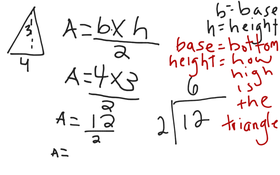 3
4
A = b x h
2
A = 4 x 3
2
A = 12
2
A =
b = base
h = height
base = bottom
height = how
high
is
the
triangle
6
2 12